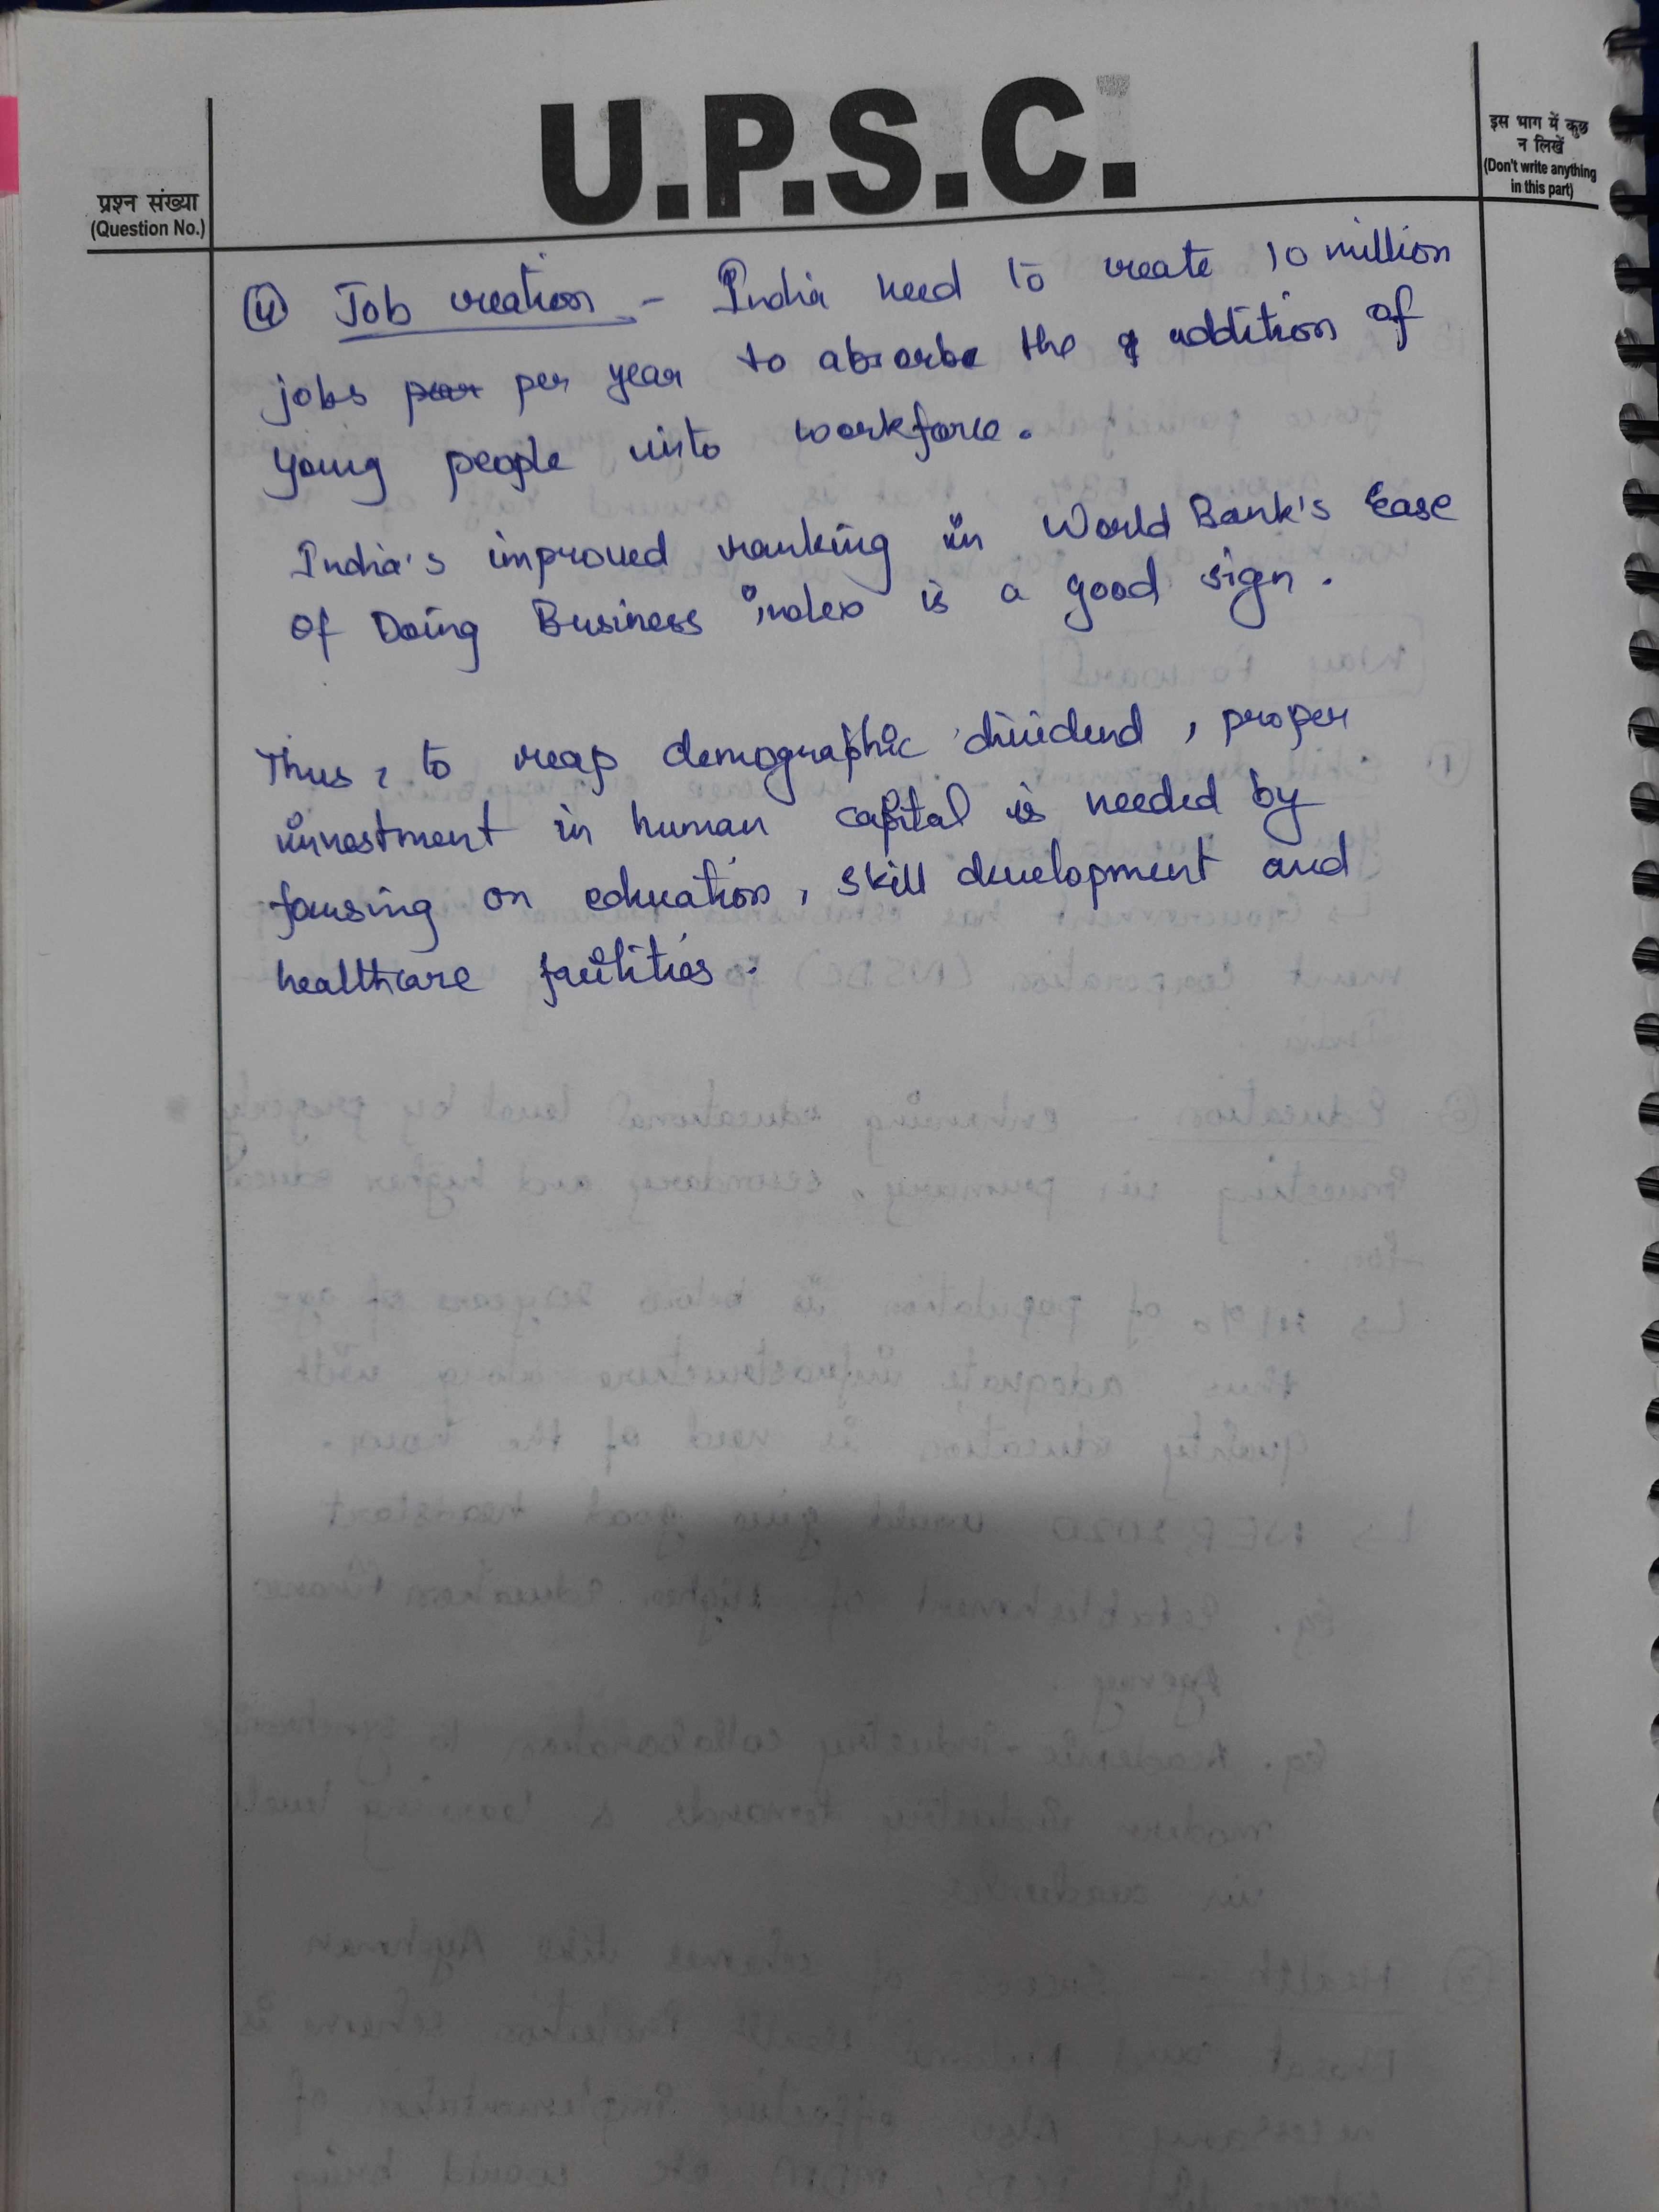 U.P.S.C.
प्रश्न संख्या
(Question No.)
इस भाग में कुछ
न लिखें
(Don't write anything
in this part)
④ Job creation - India need to create 10 million
jobs per year to absorbe the addition of
young people into workforce.
India's improved ranking in World Bank's Ease
Of Doing Business index is a good sign.
Thus, to reap demographic dividend, proper
investment in human capital is needed by
focusing on education, skill development and
healthcare facilities.